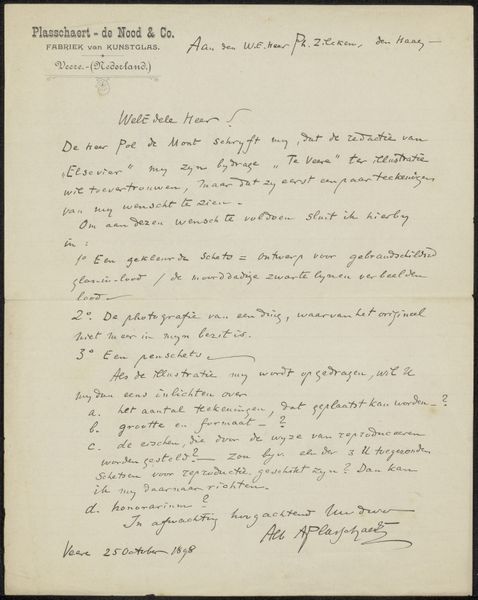 Plasschaert - de Nood & Co.
FABRIEK van KUNSTGLAS.
Veere.-(Nederland.)
Aan den W.E. Heer Ph. Zilcken, den Haag
WelEdele Heer!
De Heer Pol de Mont schryft my, dat de redactie van
"Elsevier" my zyn bydrage "Te Veere" ter illustratie
wil toevertrouwen, maar dat zy eerst een paar teekeningen
van my wenscht te zien.
Om aan dezen wensch te voldoen sluit ik hierby
in:
1o Een gekleurde schets = ontwerp voor gebrandschilderd
glas-in-lood / de moorddadige zwarte lynen verbeelden
lood
2o. De photografie van een ding, waarvan het origineel
niet meer in myn bezit is.
3o Een penschets
Als de illustratie my wordt opgedragen, wil U
my dan eens inlichten over
a. het aantal teekeningen, dat geplaatst kan worden ?
b. grootte en formaat - ?
c. de eischen, die door de wyze van reproduceeren
worden gesteld? zou byv. een der 3 U toegezonden
schetsen voor reproductie geschikt zyn? Dan kan
ik my daarnaar richten.
d. honorarium?
In afwachting hoogachtend Uw dw
Alb A Plasschaert
Veere 25 October 1898